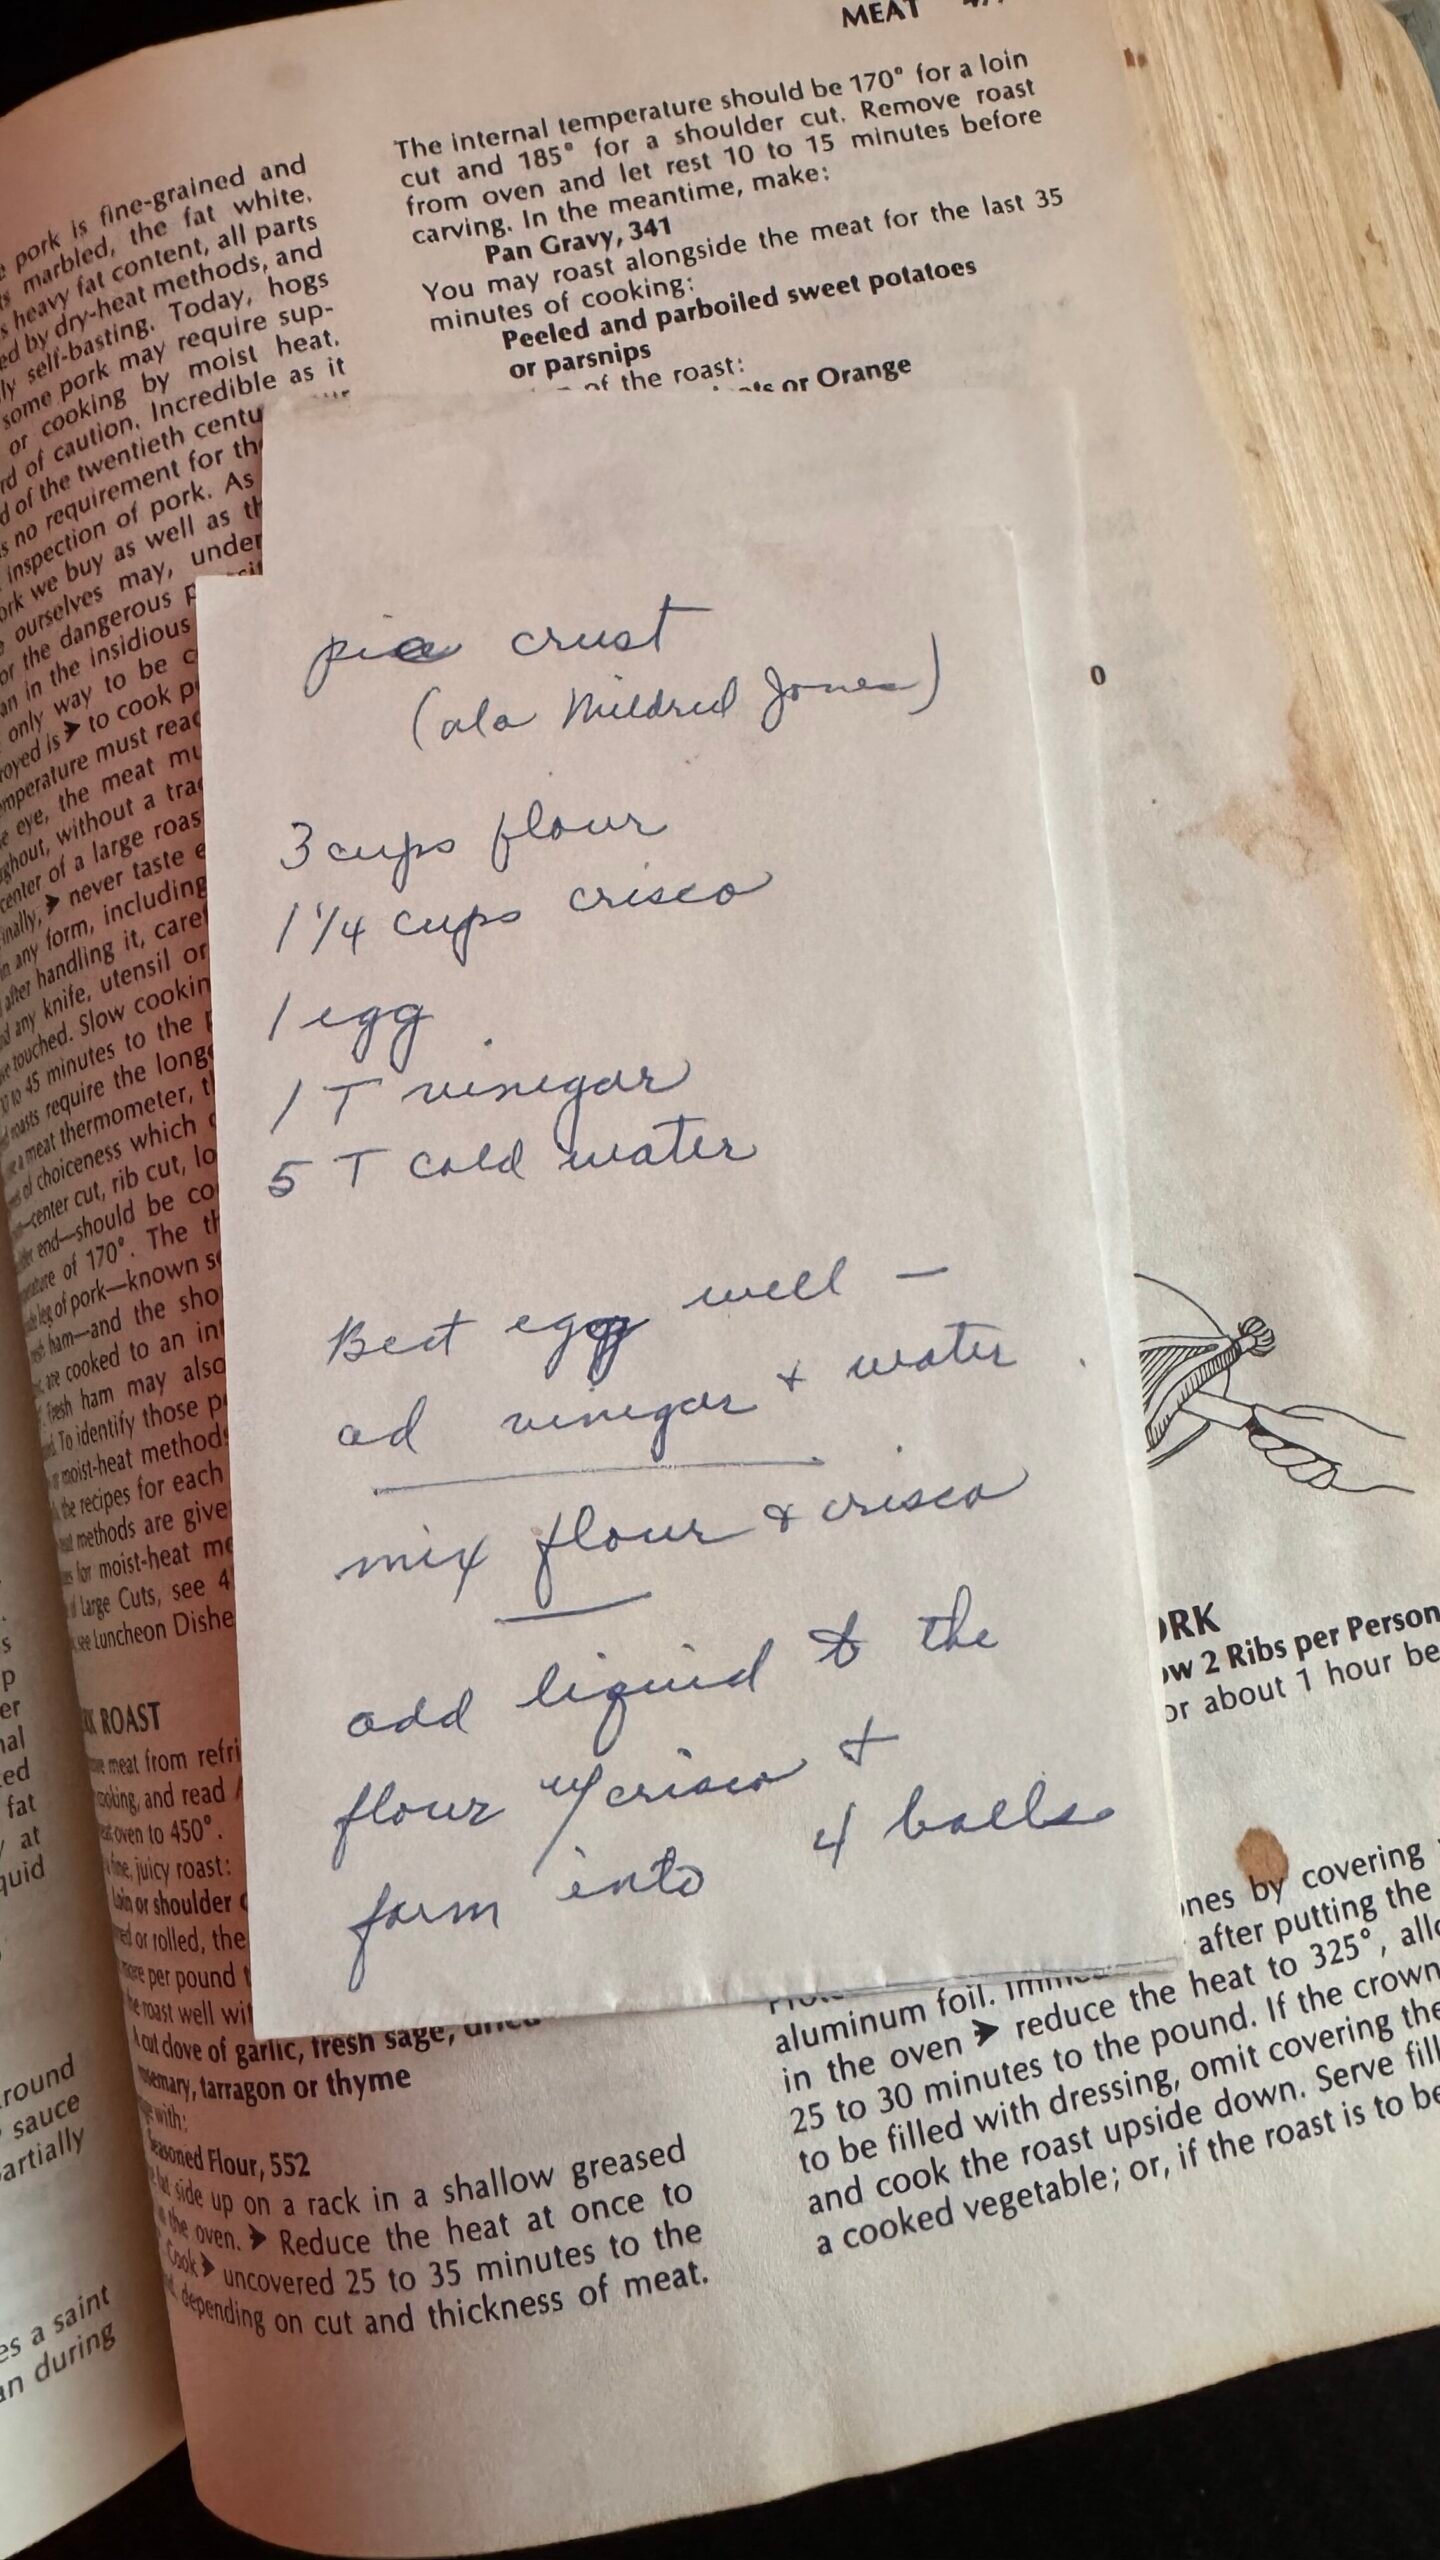 MEAT
pork is fine-grained and
marbled, the fat white.
heavy fat content, all parts
ed by dry-heat methods, and
self-basting. Today, hogs
some pork may require sup-
or cooking by moist heat.
of caution. Incredible as it
of the twentieth centu
no requirement for th
inspection of pork. As
we buy as well as th
ourselves may, under
or the dangerous
in the insidious
only way to be c
royed is ➤ to cook p
mperature must reac
eye, the meat mu
ghout, without a trac
center of a large roas
inally, ➤ never taste
in any form, including
after handling it, caref
any knife, utensil or
touched. Slow cookin
to 45 minutes to the p
roasts require the longe
meat thermometer, t
of choiceness which
center cut, rib cut, lo
end—should be co
of 170°. The th
leg of pork—known
ham—and the sho
are cooked to an int
Fresh ham may also
To identify those p
moist-heat methods
the recipes for each
methods are give
for moist-heat me
Large Cuts, see 4
see Luncheon Dishe
ROAST
meat from refri
cooking, and read
oven to 450°.
fine, juicy roast:
Loin or shoulder
or rolled, the
per pound
roast well wit
A cut clove of garlic, fresh sage, dried
rosemary, tarragon or thyme
with:
Seasoned Flour, 552
side up on a rack in a shallow greased
the oven. ➤ Reduce the heat at once to
Cook ➤ uncovered 25 to 35 minutes to the
depending on cut and thickness of meat.
The internal temperature should be 170° for a loin
cut and 185° for a shoulder cut. Remove roast
from oven and let rest 10 to 15 minutes before
carving. In the meantime, make:
Pan Gravy, 341
You may roast alongside the meat for the last 35
minutes of cooking:
Peeled and parboiled sweet potatoes
or parsnips
of the roast:
or Orange
0
pie crust
(ala Mildred Jones)
3 cups flour
1 1/4 cups crisco
1 egg
1 T vinegar
5 T cold water
Beat egg well —
ad vinegar + water
mix flour & crisco
add liquid to the
flour w/crisco +
form into 4 balls
ORK
ow 2 Ribs per Person
or about 1 hour be
nes by covering
after putting the
aluminum foil.
in the oven ➤ reduce the heat to 325°, allo
25 to 30 minutes to the pound. If the crown
to be filled with dressing, omit covering the
and cook the roast upside down. Serve fill
a cooked vegetable; or, if the roast is to be
s
p
er
nal
ed
fat
at
quid
round
sauce
artially
es a saint
an during